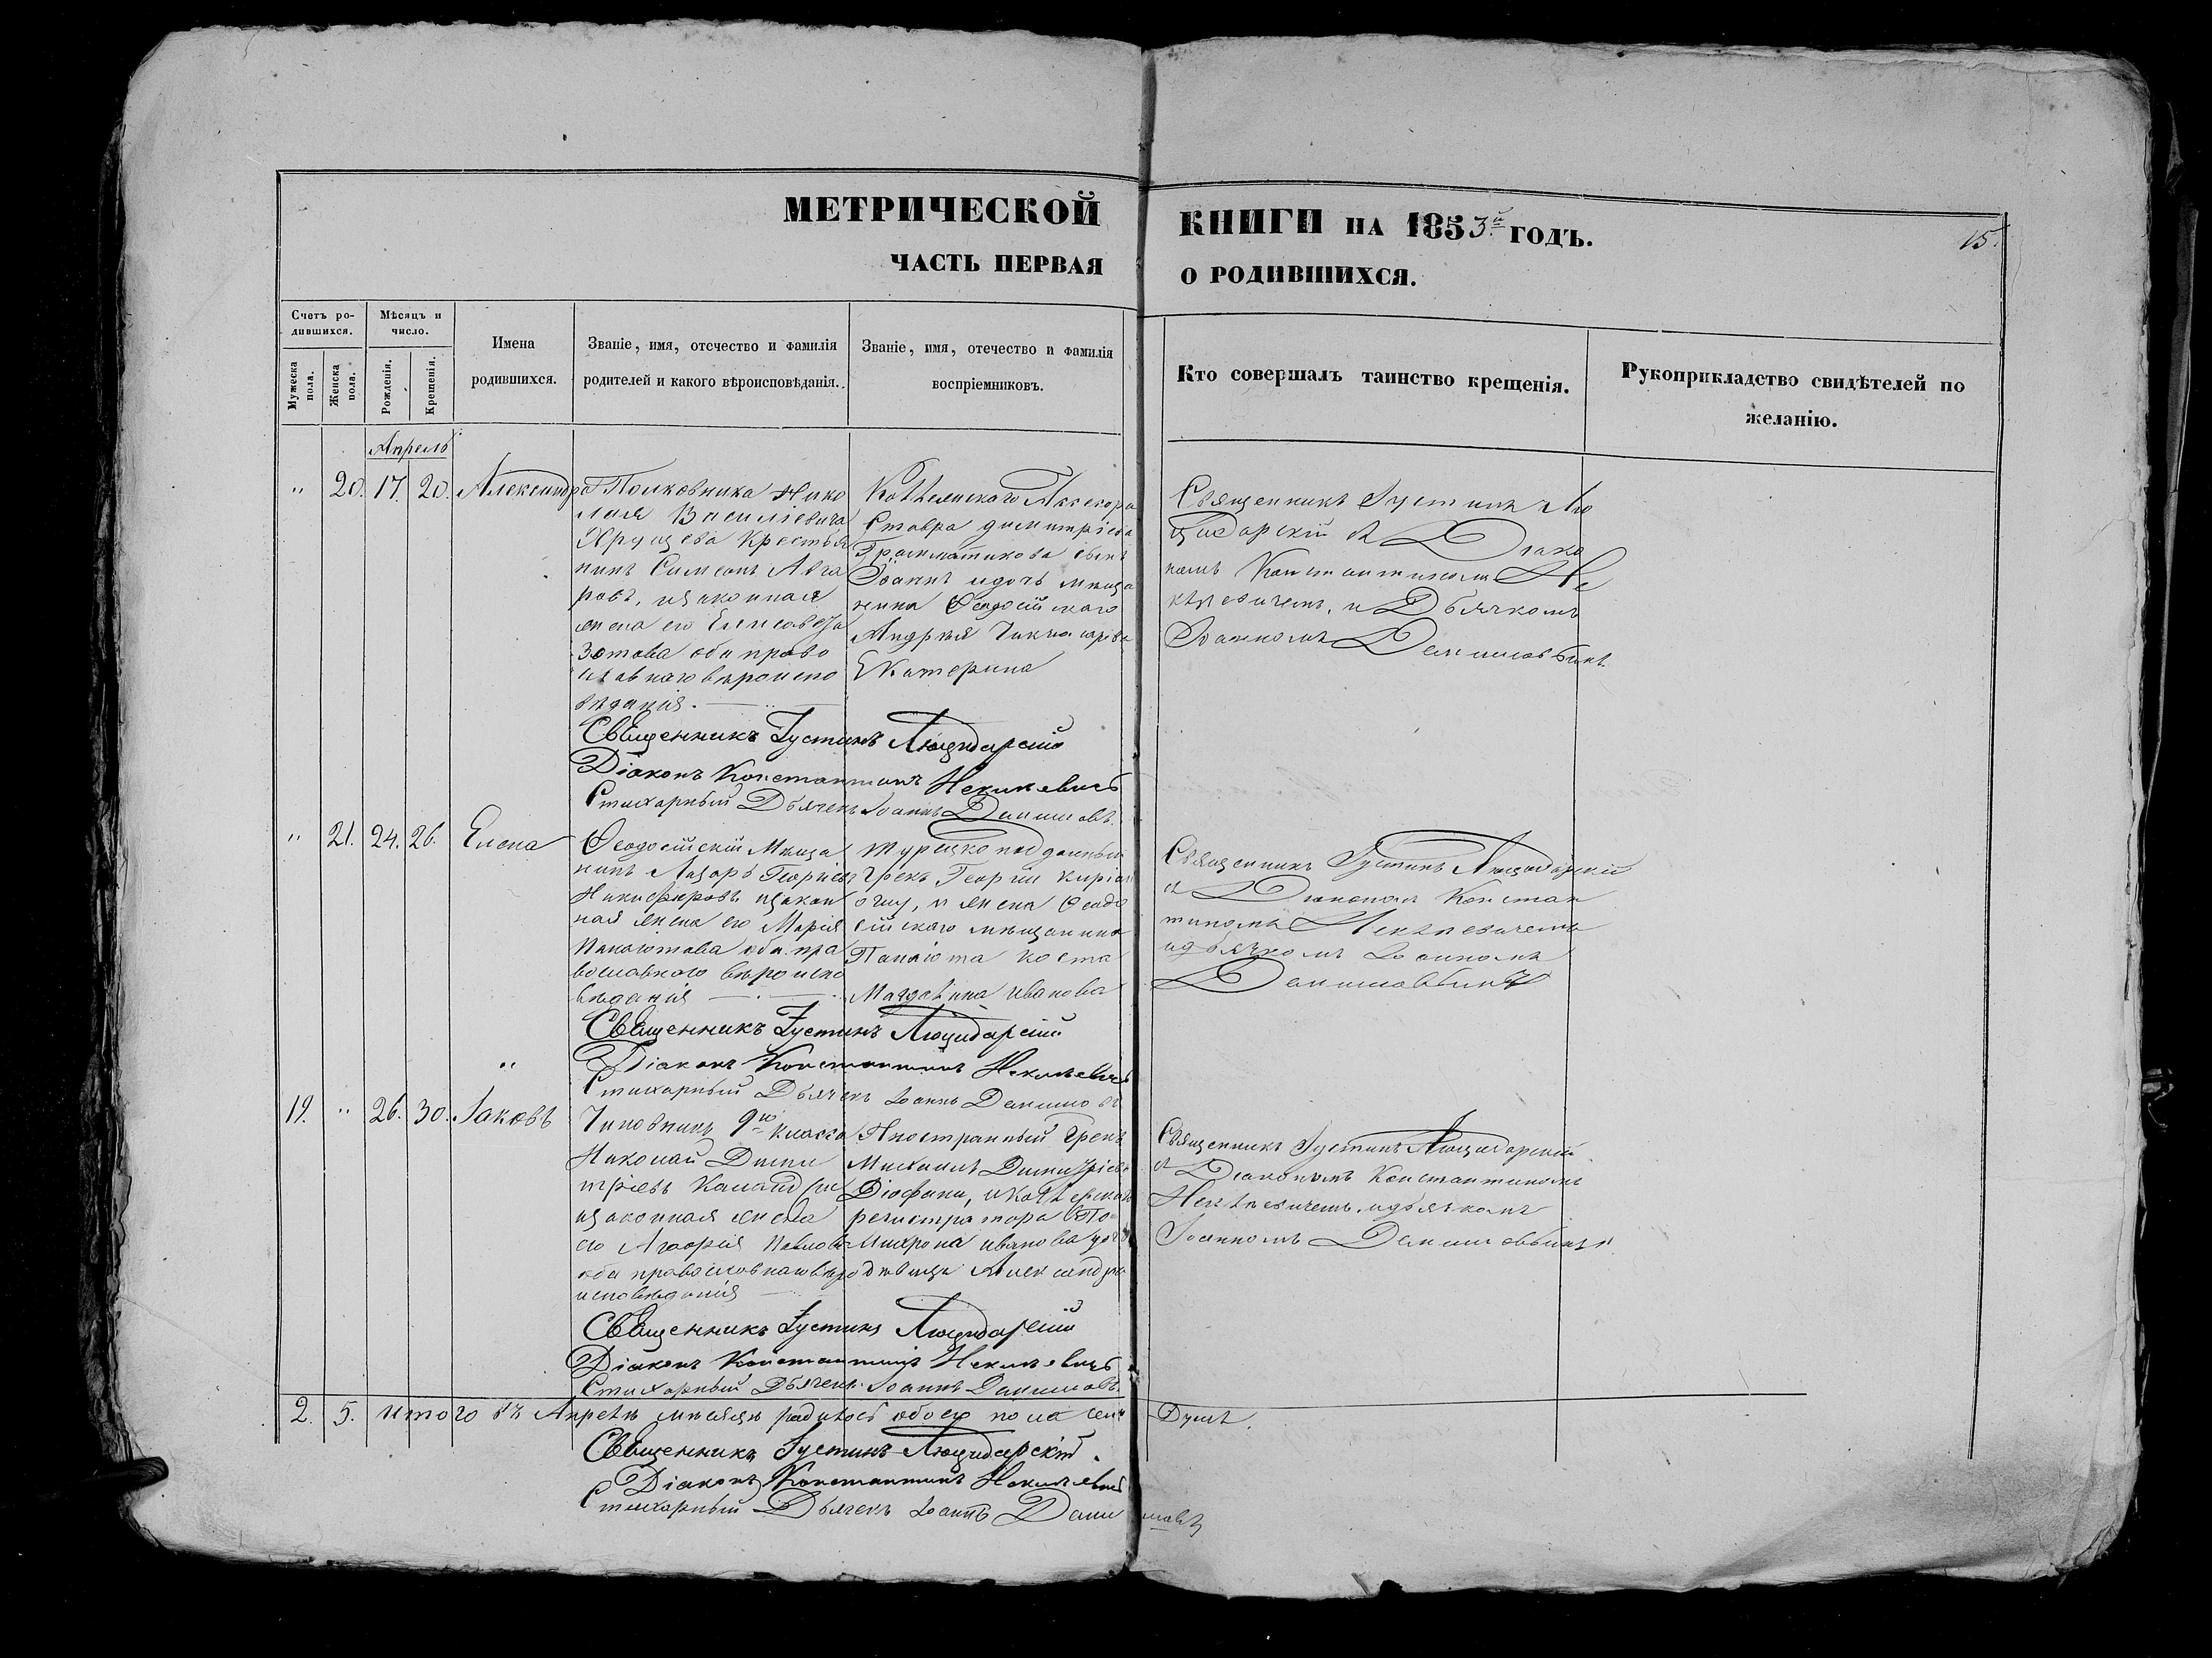 МЕТРИЧЕСКОЙ КНИГИ НА 1853й ГОДЪ.
15.
ЧАСТЬ ПЕРВАЯ О РОДИВШИХСЯ.
Счетъ ро-
дившихся.
Мужеска пола.
Женска пола.
Мѣсяцъ и
число.
Рожденія.
Крещенія.
Имена
родившихся.
Званіе, имя, отечество и фамилія
родителей и какого вѣроисповѣданія.
Званіе, имя, отечество и фамилія
воспріемниковъ.
Кто совершалъ таинство крещенія.
Рукоприкладство свидѣтелей по
желанію.
Апрель
" 20. 17. 20. Александра
Полковника Нико
лая Василіевича
Хрущева Крестья
нинъ Симеонъ
законная
жена его Елисавета
Зотова оба право
славнаго вѣроиспо
вѣданія.
Ставра Димитріева
Грамматикова сынъ
Іоаннъ и дочь мѣща
нина Ѳеодосійскаго
Андрея
Екатерина
Священникъ Іустинъ Лю
цидарскій съ Діако
номъ Константиномъ Не
и Дьячкомъ
Іоанномъ
Священникъ Іустинъ Люцидарскій
Діаконъ Константинъ
Стихарный Дьячекъ Іоаннъ Даниловъ.
" 21. 24. 26. Елена
Ѳеодосійскій Мѣща
нинъ Лазарь Георгіевъ
Никифоровъ и закон
ная жена его Марія
Панаіотова оба пра
вославнаго вѣроиспо
вѣданія
Турецко подданный
Грекъ Георгій
и жена Ѳеодо
сійскаго мѣщанина
Панаіота Коста
Магдалина Иванова
Священникъ Іустинъ Люцидарскій
съ Діакономъ Констан
тиномъ
и дьячкомъ Іоанномъ
Священникъ Іустинъ Люцидарскій
Діаконъ Константинъ
Стихарный Дьячекъ Іоаннъ Даниловъ
19. " 26. 30. Іаковъ
Чиновникъ 9го класса
Николай Дими
тріевъ
и законная жена
его Павлова
оба православнаго вѣро
исповѣданія
Иностранный Грекъ
Михаилъ Димитріевъ
регистратора
Митрона Иванова дочь
дѣвица Александра
Священникъ Іустинъ Люцидарскій
съ Діакономъ Константиномъ
и дьячкомъ
Іоанномъ
Священникъ Іустинъ Люцидарскій
Діаконъ Константинъ
Стихарный Дьячекъ Іоаннъ Даниловъ.
2. 5. Итого въ Апрелѣ мѣсяцѣ родилось обоего пола семь Душъ.
Священникъ Іустинъ Люцидарскій.
Діаконъ Константинъ
Стихарный Дьячекъ Іоаннъ Даниловъ